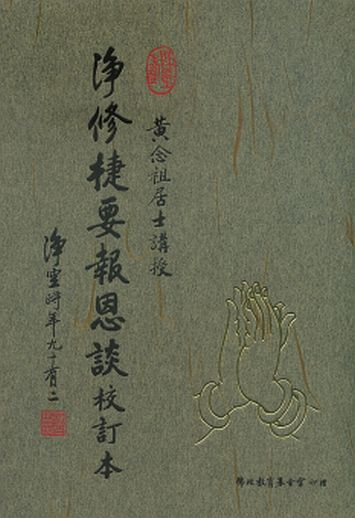 黃念祖居士講授
淨修捷要報恩談校訂本
淨空時年九十有二
佛陀教育基金會 印贈